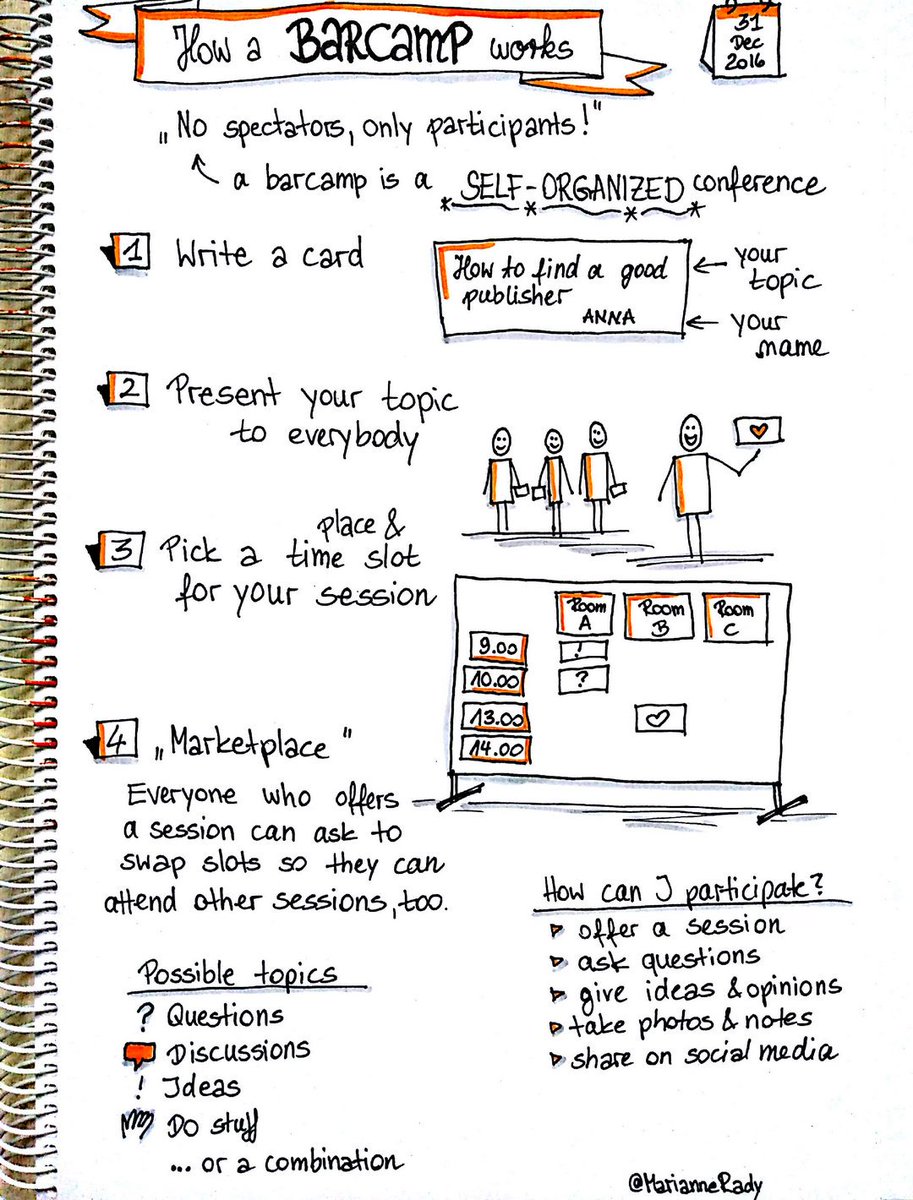 How a BARCAMP works
31
Dec
2016
„No spectators, only participants!"
a barcamp is a SELF-ORGANIZED conference
1 Write a card
How to find a good
publisher
ANNA
your
topic
your
name
2 Present your topic
to everybody
3 Pick a place &
time slot
for your session
Room
A
Room
B
Room
C
9.00
!
10.00
?
13.00
14.00
4 „Marketplace"
Everyone who offers
a session can ask to
swap slots so they can
attend other sessions, too.
Possible topics
? Questions
Discussions
! Ideas
Do stuff
... or a combination
How can I participate?
offer a session
ask questions
give ideas & opinions
take photos & notes
share on social media
@MarianneRady